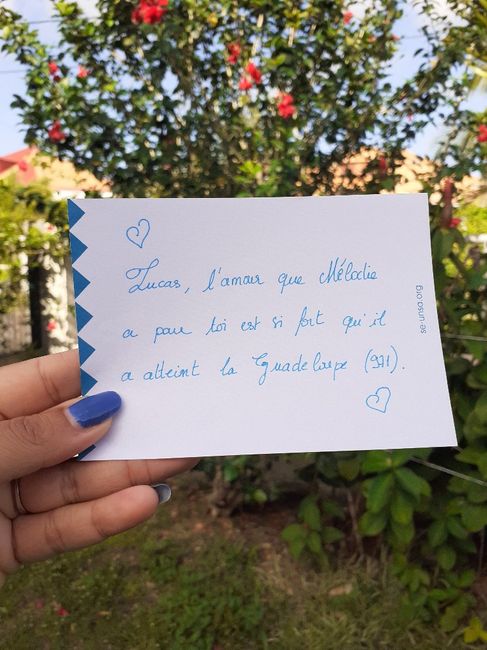 Lucas, l'amour que Mélodie
a pour toi est si fort qu'il
a atteint la Guadeloupe (971).
se-unsa.org